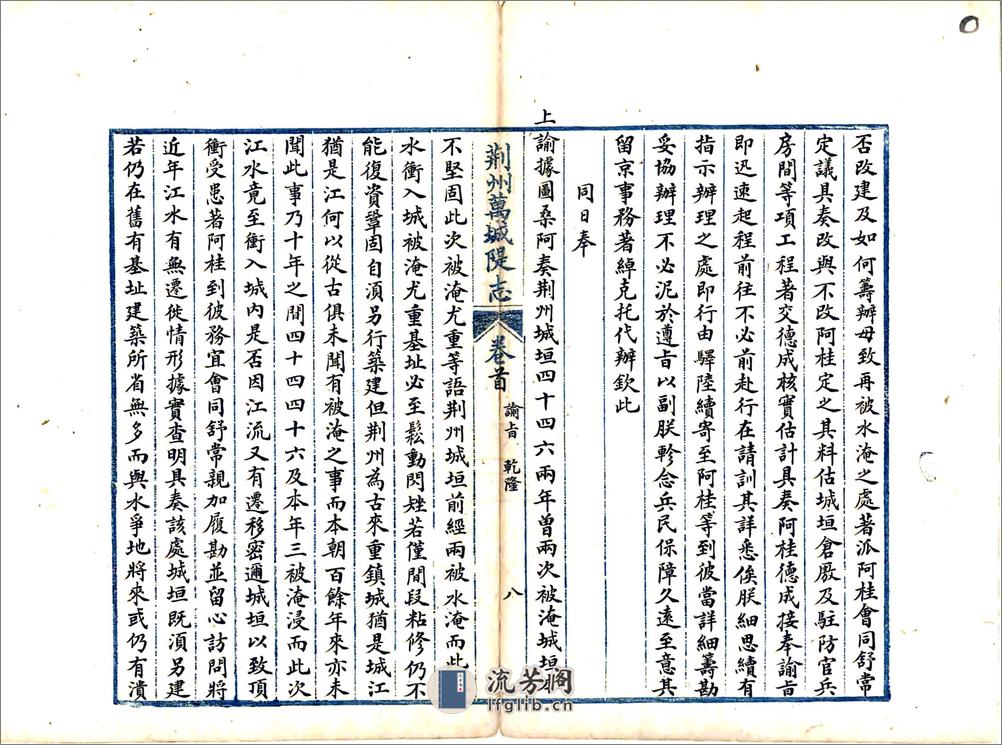 否改建及如何籌辦毋致再被水淹之處著派阿桂會同舒常
定議具奏改與不改阿桂定之其料估城垣倉廒及駐防官兵
房間等項工程著交德成核實估計具奏阿桂德成接奉諭旨
即迅速起程前往不必前赴行在請訓其詳悉俟朕細思續有
指示辦理之處即行由驛陸續寄至阿桂等到彼當詳細籌勘
妥協辦理不必泥於遵旨以副朕軫念兵民保障久遠至意其
留京事務著綽克托代辦欽此
同日奉
上諭據圖桑阿奏荆州城垣四十四六兩年曾兩次被淹城垣
荆州萬城隄志 卷首 諭旨 乾隆 八
不堅固此次被淹尤重等語荆州城垣前經兩被水淹而此
水衝入城被淹尤重基址必至鬆動閃矬若僅間段粘修仍不
能復資鞏固自須另行築建但荆州為古來重鎮城猶是城江
猶是江何以從古俱未聞有被淹之事而本朝百餘年來亦未
聞此事乃十年之間四十四四十六及本年三被淹浸而此次
江水竟至衝入城内是否因江流又有遷移密邇城垣以致頂
衝受患著阿桂到彼務宜會同舒常親加履勘並留心訪問將
近年江水有無遷徙情形據實查明具奏該處城垣既須另建
若仍在舊有基址建築所省無多而與水爭地將來或仍有潰
流芳阁
lfglib.cn